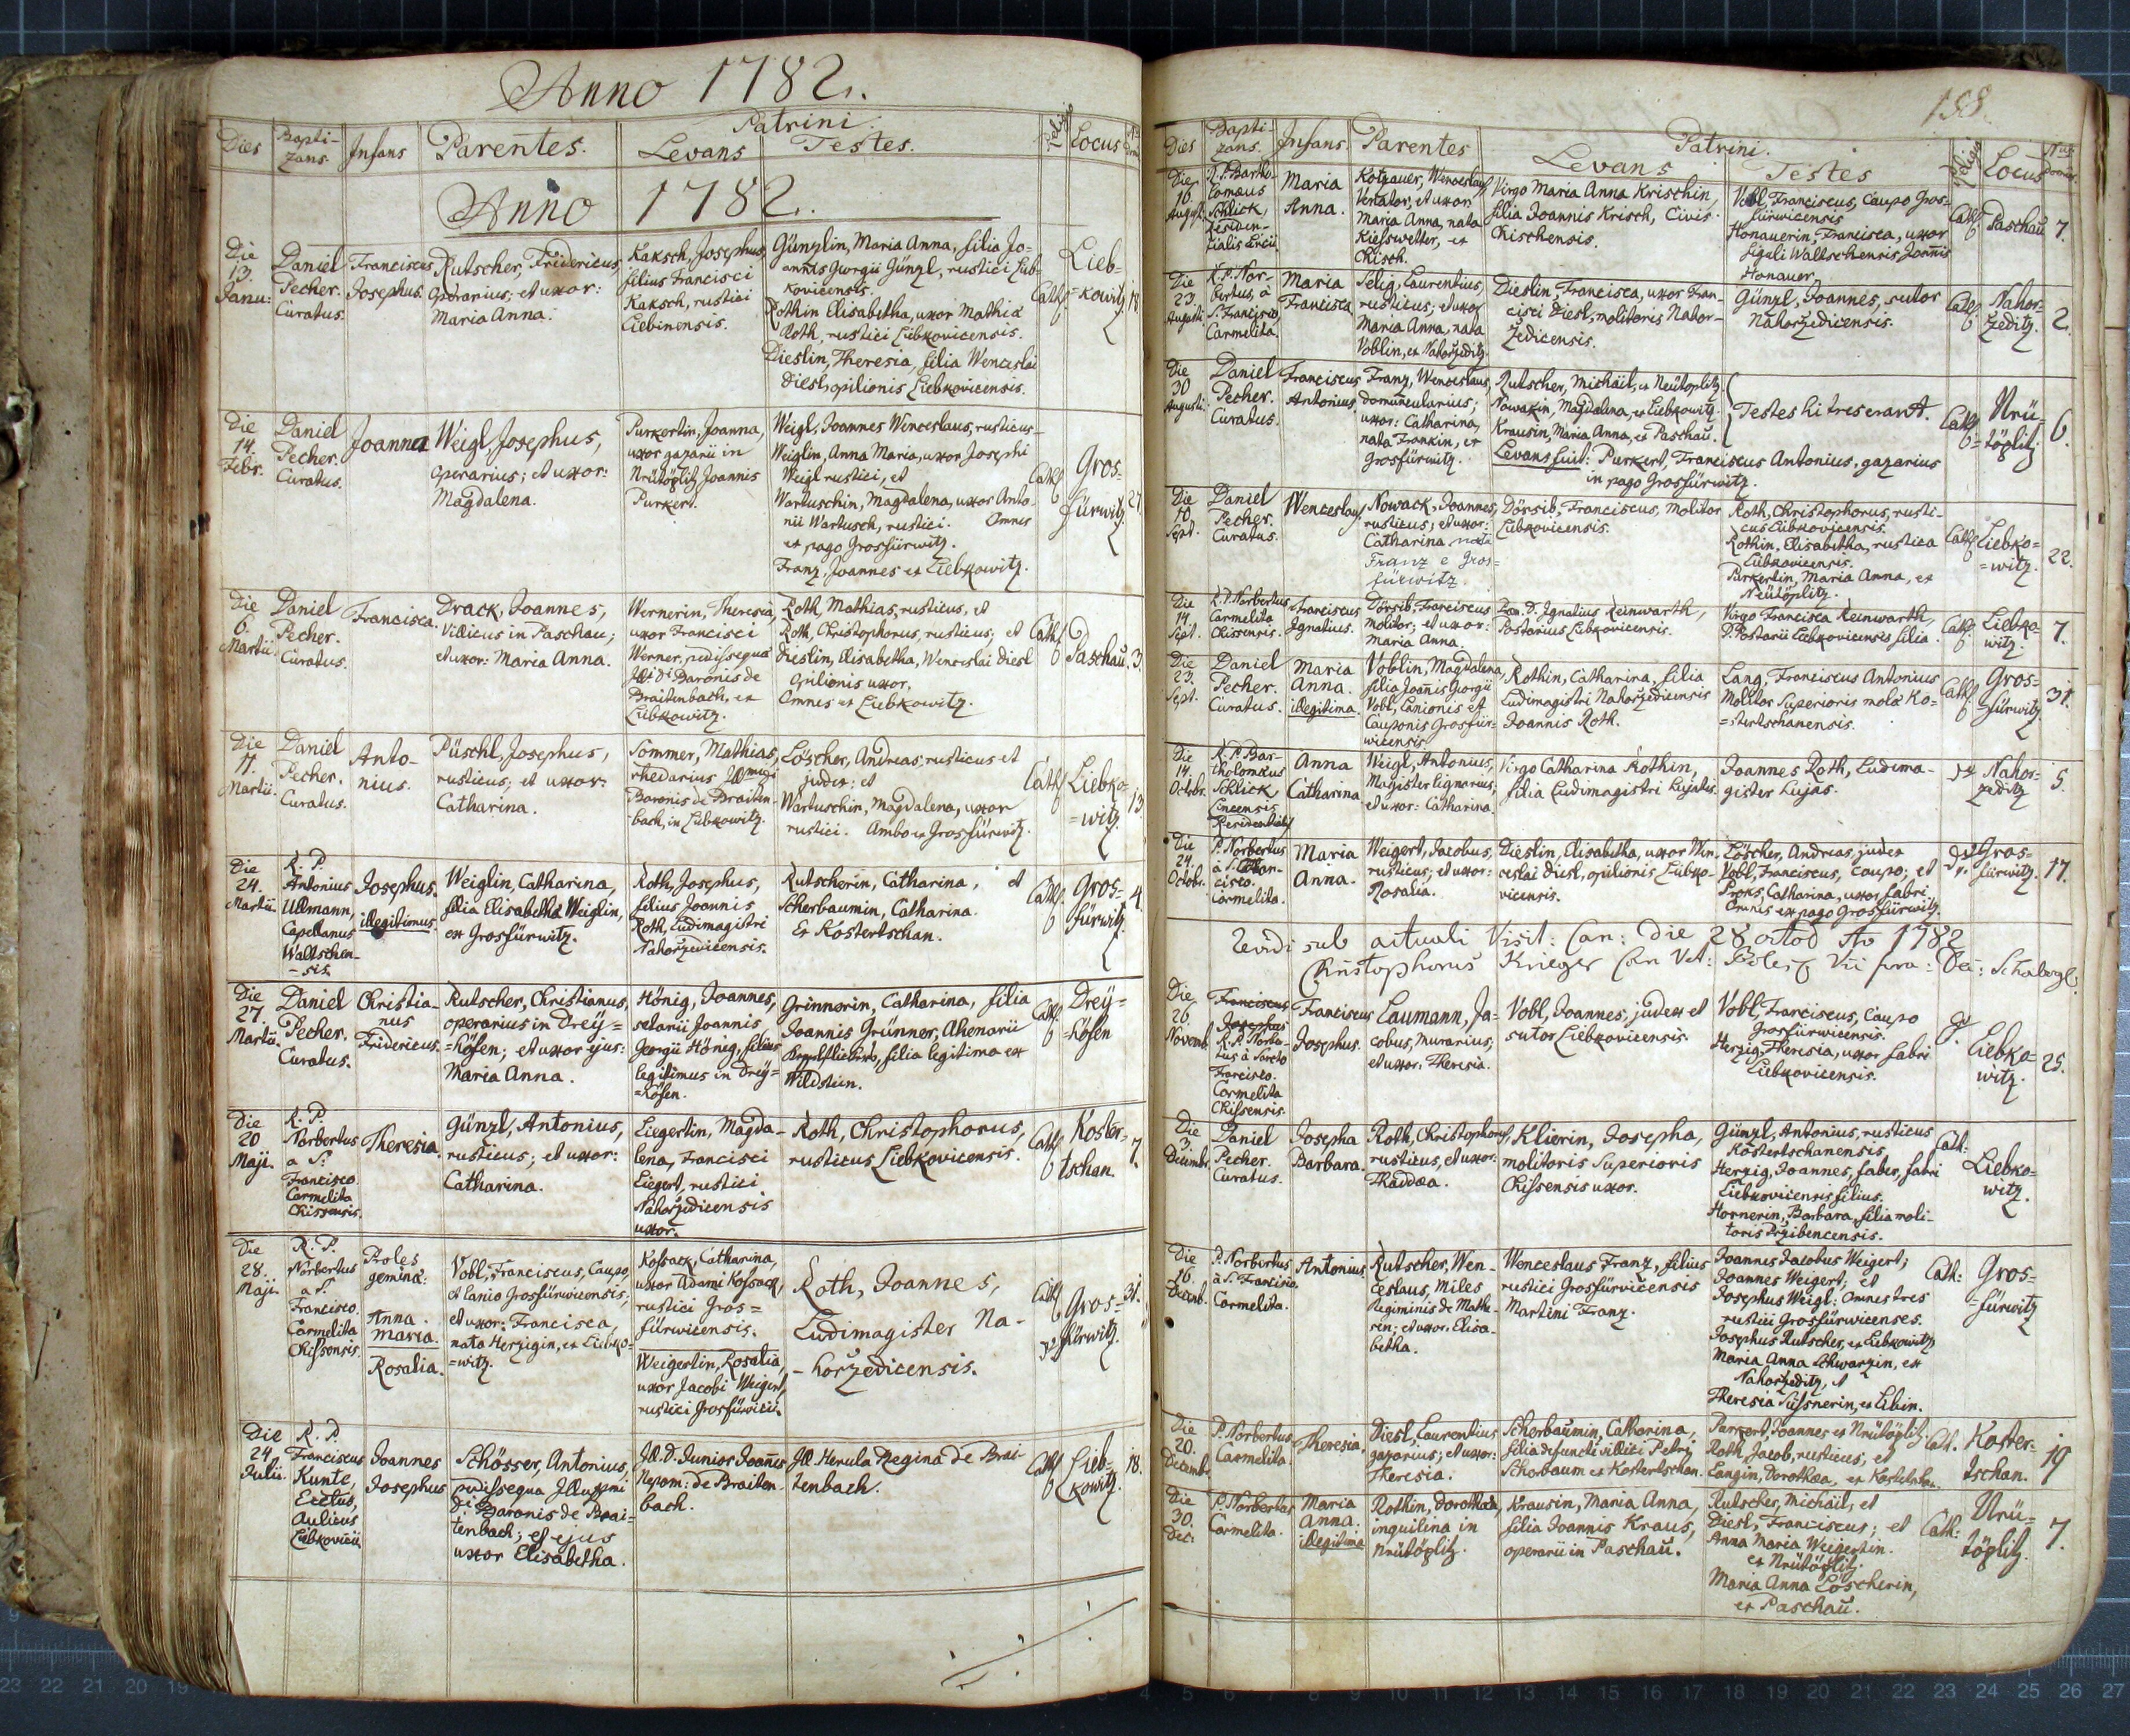 Anno 1782.
Dies
Bapti-
zans.
Infans
Parentes.
Patrini.
Levans
Testes.
Religio
Locus
Anno 1782.
Die
13.
Janu:
Daniel
Pecher.
Curatus.
Franciscus
Josephus.
Rutscher, Fridericus,
operarius; et uxor:
Maria Anna.
Kaksch, Josephus,
filius Francisci
Kaksch, rustici
Liebinensis.
Günzlin, Maria Anna, filia Jo-
annis Georgii Günzl, rustici Lieb-
kovicensis.
Rothin Elisabetha, uxor Mathiæ
Roth, rustici Liebkovicensis.
Dieslin, Theresia, filia Wenceslai
Diesl, opilionis Liebkovicensis.
Cath
Lieb=
=kowitz.
18.
Die
14.
Febr.
Daniel
Pecher.
Curatus.
Joanna
Weigl, Josephus,
operarius; et uxor:
Magdalena.
Purkertin, Joanna,
uxor gazarii in
Nrütöplitz Joannis
Purkert.
Weigl, Joannes Wenceslaus, rusticus
Weiglin, Anna Maria, uxor Josephi
Weigl rustici, et
Wartuschin, Magdalena, uxor Anto-
nii Wartusch, rustici. Omnes
ex pago Grosfürwitz.
Franz, Joannes ex Liebkowitz.
Cath
Gros=
fürwitz.
Die
6.
Martii.
Daniel
Pecher.
Curatus.
Francisca.
Drack, Joannes,
Villicus in Paschau;
et uxor: Maria Anna.
Wernerin, Theresia,
uxor Francisci
Werner, pedissequa
Baronis de
Braitenbach, ex
Liebkowitz.
Roth, Mathias, rusticus, et
Roth, Christophorus, rusticus; et
Dieslin, Elisabetha, Wenceslai Diesl
opilionis uxor.
Omnes ex Liebkowitz.
Cath
Paschau.
3.
Die
11.
Martii.
Daniel
Pecher.
Curatus.
Anto-
nius.
Püschl, Josephus,
rusticus; et uxor:
Catharina.
Sommer, Mathias,
rhedarius
Baronis de Braiten-
bach, in Liebkowitz.
Löscher, Andreas, rusticus et
judex; et
Wartuschin, Magdalena, uxor
rustici. Ambo ex Grosfürwitz.
Cath
Liebko-
=witz.
13.
Die
24.
Martii.
R. P.
Antonius
Ullmann,
Capellanus
Waltschen-
-sis.
Josephus.
illegitimus.
Weiglin, Catharina,
filia Elisabethæ Weiglin,
ex Grosfürwitz.
Roth, Josephus,
filius Joannis
Roth, Ludimagistri
Nahorzedicensis.
Rutscherin, Catharina, et
Scherbaumin, Catharina.
Ex Kostertschan.
Cath
Gros=
fürwitz.
4.
Die
27.
Martii.
Daniel
Pecher.
Curatus.
Christia-
nus
Fridericus.
Rutscher, Christianus,
operarius in Dreÿ=
=höfen; et uxor ejus:
Maria Anna.
Hönig, Joannes,
selarii Joannis
Georgii Hönig, filius
legitimus in Dreÿ=
=höfen.
Grinnerin, Catharina, filia
Joannis Grünner, Ahenarii
filia legitima ex
Wildstein.
Cath
Dreÿ=
=höfen
Die
20
Maji.
R. P.
Norbertus
a S:
Francisco.
Carmelita
Chissensis.
Theresia.
Günzl, Antonius,
rusticus; et uxor:
Catharina.
Liegertin, Magda-
lena, Francisci
Liegert, rustici
Nahorzedicensis
uxor.
Roth, Christophorus,
rusticus Liebkovicensis.
Cath
Koster=
tschan.
7.
Die
28.
Maji.
R. P.
Norbertus
a S.
Francisco.
Carmelita
Chissensis.
Proles
gemina:
Anna
Maria.
Rosalia.
Vobl, Franciscus, Caupo,
et lanio Grosfürwicensis;
et uxor: Francisca,
nata Herzigin, ex Liebko-
=witz.
Kossack, Catharina,
uxor Adami Kossack,
rustici Gros=
fürwicensis.
Weigertin, Rosalia,
uxor Jacobi Weigert,
rustici Grosfürwicen.
Roth, Joannes,
Ludimagister Na-
-horzedicensis.
Cath
Gros=
fürwitz.
31.
Die
24.
Julii.
R. P.
Franciscus
Kunte,
Aulicus
Joannes
Josephus
Schösser, Antonius,
pedissequa Illustrissimi
Baronis de Brai-
tenbach; et ejus
uxor Elisabetha.
Ill. D. Junior Joannes
Nepom: de Braiten-
bach.
Ill. Herula Regina de Brai-
tenbach.
Cath
Lieb-
kowitz.
18.
188.
Dies
Bapti-
zans.
Infans
Parentes
Patrini.
Levans
Testes
Religio
Locus
Die
16.
August:
R. P. Bartho-
lomæus
Schlick,
Residen-
tialis
Maria
Anna.
Kotzauer, Wenceslaus
Venator, et uxor
Maria Anna, nata
Kießwetter, ex
Chisch.
Virgo Maria Anna Krischin,
filia Joannis Krisch, Civis
Chischensis.
Vobl, Franciscus, Caupo Gros-
fürwicensis
Honauerin, Francisca, uxor
figuli Waltschensis Joannis
Honauer.
Cath
Paschau
7.
Die
23.
Augusti
R. P. Nor-
bertus, à
S. Francisco
Carmelita.
Maria
Francisca
Selig, Laurentius,
rusticus; et uxor
Maria Anna, nata
Voblin, ex Nahorzeditz.
Dieslin, Francisca, uxor Fran-
cisci Diesl, molitoris Nahor-
zedicensis.
Günzl, Joannes, sutor
Nahorzedicensis.
Cath
Nahor=
zeditz.
2.
Die
30
Augusti.
Daniel
Pecher.
Curatus.
Franciscus
Antonius
Franz, Wenceslaus,
domuncularius;
uxor: Catharina,
nata Frankin, ex
Grosfürwitz.
Rutscher, Michäel, ex Neütöplitz.
Nowakin, Magdalena, ex Liebkowitz.
Krausin, Maria Anna, ex Paschau.
Testes hi tres erant.
Levans fuit: Purkert, Franciscus Antonius, gazarius
in pago Grosfürwitz.
Cath
Nrü=
töplitz
6.
Die
10.
Sept.
Daniel
Pecher.
Curatus.
Wenceslaus
Nowack, Joannes,
rusticus; et uxor:
Catharina nata
Franz e Gros=
fürwitz.
Dörsib, Franciscus, Molitor
Liebkovicensis.
Roth, Christophorus, rusti-
cus Liebkovicensis.
Rothin, Elisabetha, rustica
Liebkovicensis.
Purkertin, Maria Anna, ex
Neütöplitz.
Cath
Liebko=
=witz.
22.
Die
14.
Sept.
R. P. Norbertus
Carmelita
Chissensis.
Franciscus
Ignatius.
Dörsib, Franciscus
molitor; et uxor:
Maria Anna.
D. Ignatius Reinwarth,
Postarius Liebkovicensis.
Virgo Francisca Reinwarth,
D. Postarii Liebkovicensis filia.
Cath
Liebko-
witz.
7.
Die
23.
Sept.
Daniel
Pecher.
Curatus.
Maria
Anna.
illegitima
Voblin, Magdalena,
filia Joannis Georgii
Vobl, Lanionis et
Cauponis Grosfür-
wicensis.
Rothin, Catharina, filia
Ludimagistri Nahorzedicensis
Joannis Roth.
Lang, Franciscus Antonius
Molitor Superioris molæ Ko-
=stertschanensis.
Cath
Gros=
fürwitz.
31.
Die
14.
Octobr.
R. P. Bar-
tholomæus
Schlick
Residentialis
Anna
Catharina
Weigl, Antonius,
Magister lignarius,
et uxor: Catharina.
Virgo Catharina Rothin,
filia Ludimagistri hujatis.
Joannes Roth, Ludima-
gister hujas.
Nahor=
zeditz
5.
Die
24.
Octobr.
P. Norbertus
à S. Fran-
cisco.
Carmelita.
Maria
Anna.
Weigert, Jacobus,
rusticus; et uxor:
Rosalia.
Dieslin, Elisabetha, uxor Wen-
ceslai Diesl, opilionis Liebko-
vicensis.
Löscher, Andreas, judex
Vobl, Franciscus, Caupo; et
Proks, Catharina, uxor fabri
Omnes ex pago Grosfürwitz.
Gros=
fürwitz.
17.
sub actuali Visit: Can: die 28 octob Ao 1782
Christophorus Krieger
Die
26.
Novemb.
Franciscus
Josephus
R. P. Norber-
tus à Sancto
Francisco.
Carmelita
Chissensis.
Franciscus
Josephus.
Laumann, Ja-
cobus, murarius,
et uxor: Theresia.
Vobl, Joannes, judex et
sutor Liebkovicensis.
Vobl, Franciscus, Caupo
Grosfürwicensis.
Herzig, Theresia, uxor fabri
Liebkovicensis.
Liebko-
witz.
25.
Die
3.
Decembr.
Daniel
Pecher.
Curatus.
Josepha
Barbara.
Roth, Christophorus,
rusticus, et uxor:
Thaddæa.
Klierin, Josepha,
molitoris Superioris
Chissensis uxor.
Günzl, Antonius, rusticus
Kostertschanensis.
Herzig, Joannes, faber, fabri
Liebkovicensis filius.
Hornerin, Barbara, filia moli-
toris Przibencensis.
Cath:
Liebko-
witz.
Die
16.
Decemb.
P. Norbertus
à S. Francisco
Carmelita.
Antonius.
Rutscher, Wen-
ceslaus, Miles
Regiminis de Mathe-
sen; et uxor. Elisa-
betha.
Wenceslaus Franz, filius
rustici Grosfürvicensis
Martini Franz.
Joannes Jacobus Weigert;
Joannes Weigert; et
Josephus Weigl: omnes tres
rustici Grosfürwicenses.
Josephus Rutscher, ex Liebkowitz
Maria Anna Schwarzin, ex
Nahorzeditz, et
Theresia Süssnerin, ex Libin.
Cath:
Gros=
=fürwitz
Die
20.
Decembr.
P. Norbertus
Carmelita.
Theresia,
Diesl, Laurentius
gazarius; et uxor:
Theresia.
Scherbaumin, Catharina,
filia defuncti villici Petri
Scherbaum ex Kostertschan.
Purkert, Joannes ex Nrütöplitz
Roth, Jacob, rusticus; et
Langin, Dorothæa, ex
Cath.
Koster-
tschan.
19
Die
30.
Dec:
P. Norbertus
Carmelita.
Maria
Anna.
illegitima
Rothin, Dorothæa,
inquilina in
Nrütöplitz.
Krausin, Maria Anna,
filia Joannis Kraus,
operarii in Paschau.
Rutscher, Michäil, et
Diesl, Franciscus; et
Anna Maria Weigertin.
ex Nrütöplitz.
Maria Anna Löscherin,
ex Paschau.
Cath:
Nrü-
töplitz.
7.